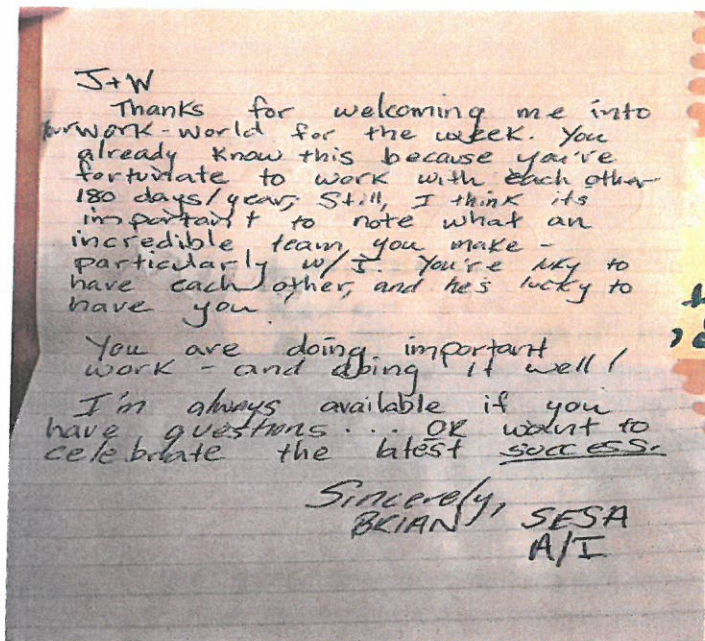 J+W
Thanks for welcoming me into
your work-world for the week. You
already know this because you're
fortunate to work with each other
180 days/year, Still, I think its
important to note what an
incredible team you make -
particularly w/ J. You're lucky to
have each other, and he's lucky to
have you
You are doing important
work - and doing it well!
I'm always available if you
have questions ... OR want to
celebrate the latest success.
Sincerely,
BRIAN SESA
A/I